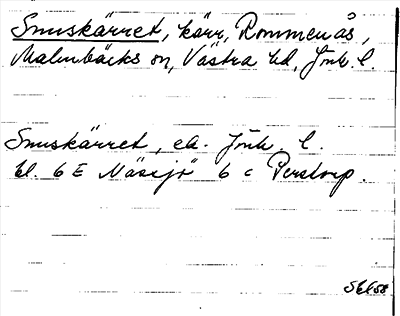 Smuskärret, kärr, Rommenås,
Malmbäcks sn, Västra hd, Jönk. l.
Smuskärret, ek. Jönk. l.
bl. 6 E Nässjö 6 c Perstorp.